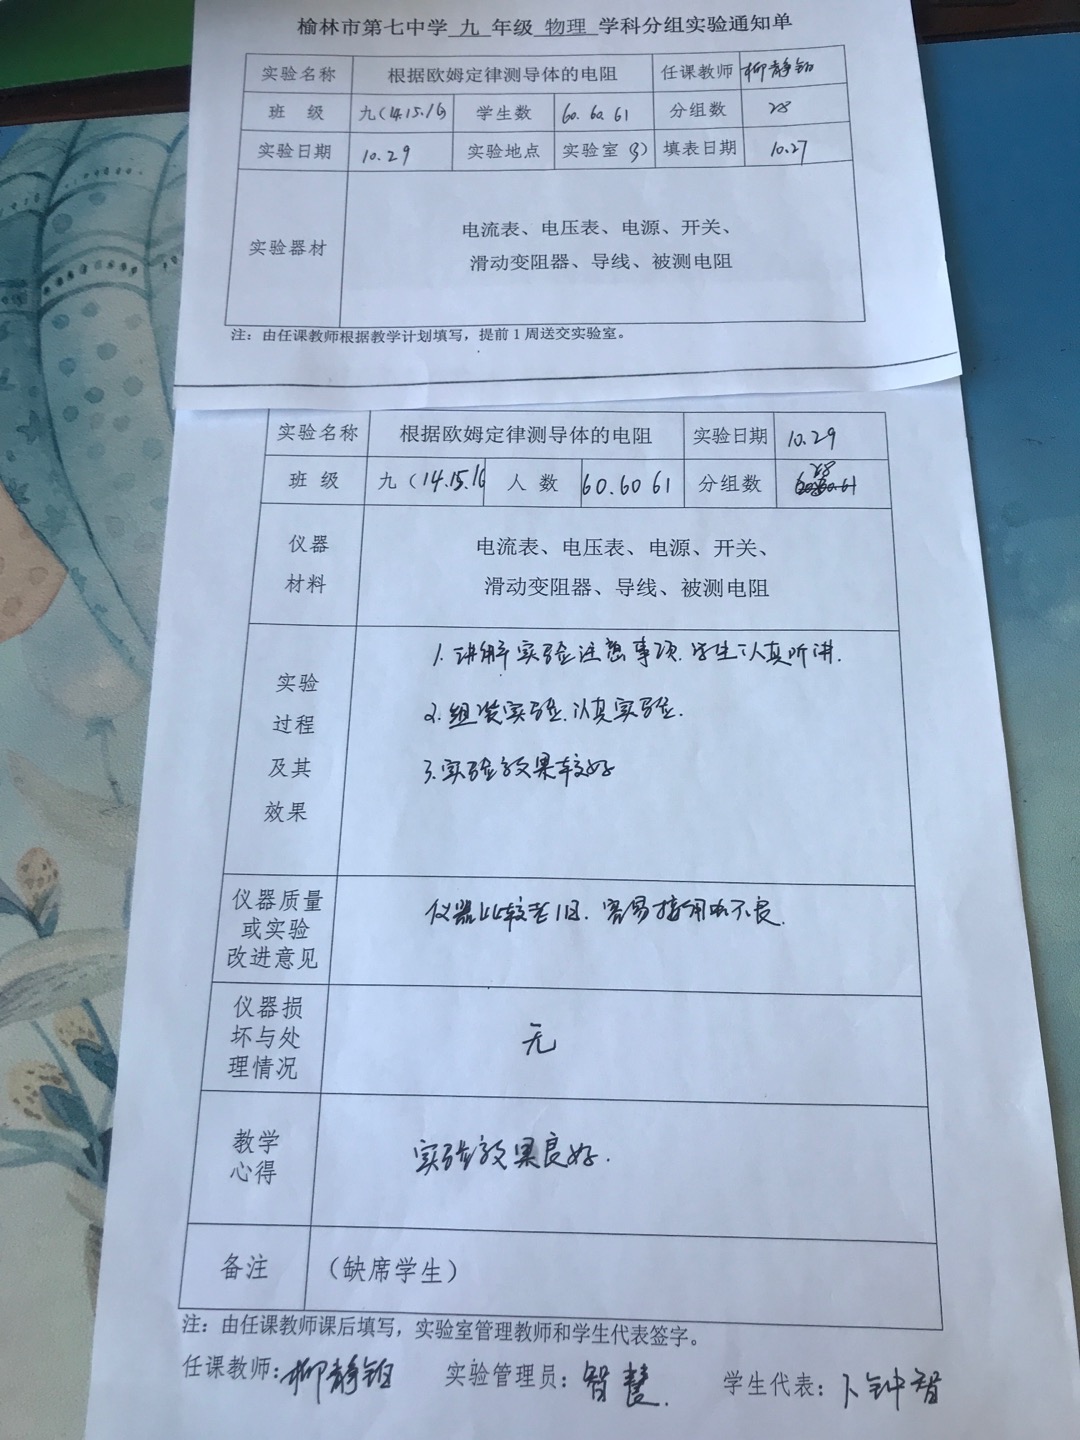 榆林市第七中学 九 年级 物理 学科分组实验通知单
实验名称 根据欧姆定律测导体的电阻 任课教师 柳静
班 级 九(14.15.16) 学生数 60.60.61 分组数 28
实验日期 10.29 实验地点 实验室(3) 填表日期 10.27
实验器材
电流表、电压表、电源、开关、
滑动变阻器、导线、被测电阻
注：由任课教师根据教学计划填写，提前1周送交实验室。
实验名称 根据欧姆定律测导体的电阻 实验日期 10.29
班 级 九（14.15.16 人 数 60.60 61 分组数 28
仪器
材料
电流表、电压表、电源、开关、
滑动变阻器、导线、被测电阻
实验
过程
及其
效果
1. 讲解实验注意事项.学生认真听讲.
2. 组装实验.认真实验.
3. 实验效果较好
仪器质量
或实验
改进意见
仪器比较老旧.容易接触不良.
仪器损
坏与处
理情况
无
教学
心得
实验效果良好.
备注 （缺席学生）
注：由任课教师课后填写，实验室管理教师和学生代表签字。
任课教师：柳静 实验管理员：智慧. 学生代表：卜钟智